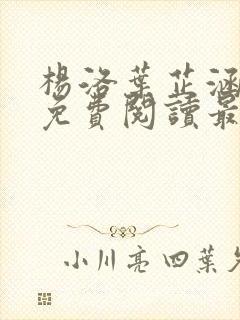 楊洛葉芷涵
免費閱讀最
小川亮四葉